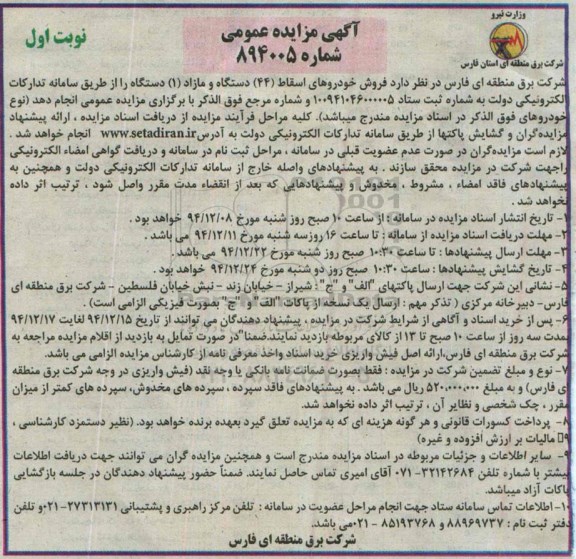 وزارت نیرو
شرکت برق منطقه ای استان فارس
آگهی مزایده عمومی
شماره ۸۹۴۰۰۵
نوبت اول
شرکت برق منطقه ای فارس در نظر دارد فروش خودروهای اسقاط (۴۴) دستگاه و مازاد (۱) دستگاه را از طریق سامانه تدارکات
الکترونیکی دولت به شماره ثبت ستاد ۱۰۰۹۴۱۰۴۶۰۰۰۰۰۵ و شماره مرجع فوق الذکر با برگزاری مزایده عمومی انجام دهد (نوع
خودروهای فوق الذکر در اسناد مزایده مندرج میباشد). کلیه مراحل فرآیند مزایده از دریافت اسناد مزایده ، ارائه پیشنهاد
مزایده‌گران و گشایش پاکتها از طریق سامانه تدارکات الکترونیکی دولت به آدرس www.setadiran.ir انجام خواهد شد .
لازم است مزایده‌گران در صورت عدم عضویت قبلی در سامانه ، مراحل ثبت نام در سامانه و دریافت گواهی امضاء الکترونیکی
راجهت شرکت در مزایده محقق سازند . به پیشنهادهای واصله خارج از سامانه تدارکات الکترونیکی دولت و همچنین به
پیشنهادهای فاقد امضاء ، مشروط ، مخدوش و پیشنهادهایی که بعد از انقضاء مدت مقرر واصل شود ، ترتیب اثر داده
نخواهد شد .
۱- تاریخ انتشار اسناد مزایده در سامانه : از ساعت ۱۰ صبح روز شنبه مورخ ۹۴/۱۲/۰۸ خواهد بود .
۲- مهلت دریافت اسناد مزایده از سامانه : تا ساعت ۱۶ روزسه شنبه مورخ ۹۴/۱۲/۱۱ می باشد .
۳- مهلت ارسال پیشنهادها : تا ساعت ۱۰:۳۰ صبح روز شنبه مورخ ۹۴/۱۲/۲۲ می باشد .
۴- تاریخ گشایش پیشنهادها : ساعت ۱۰:۳۰ صبح روز دو شنبه مورخ ۹۴/۱۲/۲۴ خواهد بود .
۵- نشانی این شرکت جهت ارسال پاکتهای "الف" و "ج" : شیراز – خیابان زند – نبش خیابان فلسطین – شرکت برق منطقه ای
فارس- دبیرخانه مرکزی ( تذکر مهم : ارسال یک نسخه از پاکات "الف" و "ج" بصورت فیزیکی الزامی است) .
۶- پس از خرید اسناد و آگاهی از شرایط شرکت در مزایده ، پیشنهاد دهندگان می توانند از تاریخ ۹۴/۱۲/۱۵ لغایت ۹۴/۱۲/۱۷
بمدت سه روز از ساعت ۱۰ صبح تا ۱۳ از کالای مربوطه بازدید نمایند.ضمنا"در صورت تمایل به بازدید از اقلام مزایده مراجعه به
شرکت برق منطقه ای فارس،ارائه اصل فیش واریزی خرید اسناد واخذ معرفی نامه از کارشناس مزایده الزامی می باشد.
۷- نوع و مبلغ تضمین شرکت در مزایده : فقط بصورت ضمانت نامه بانکی یا وجه نقد (فیش واریزی در وجه شرکت برق منطقه
ای فارس) و به مبلغ ۵۲۰.۰۰۰.۰۰۰ ریال می باشد . به پیشنهادهای فاقد سپرده ، سپرده های مخدوش، سپرده های کمتر از میزان
مقرر ، چک شخصی و نظایر آن ، ترتیب اثر داده نخواهد شد.
۸- پرداخت کسورات قانونی و هر گونه هزینه ای که به مزایده تعلق گیرد بعهده برنده خواهد بود. (نظیر دستمزد کارشناسی ،
۹٪ مالیات بر ارزش افزوده و غیره)
۹- سایر اطلاعات و جزئیات مربوطه در اسناد مزایده مندرج است و همچنین مزایده گران می توانند جهت دریافت اطلاعات
بیشتر با شماره تلفن ۳۲۱۴۲۶۸۴-۰۷۱ آقای امیری تماس حاصل نمایند. ضمناً حضور پیشنهاد دهندگان در جلسه بازگشایی
پاکات آزاد میباشد.
۱۰-اطلاعات تماس سامانه ستاد جهت انجام مراحل عضویت در سامانه : تلفن مرکز راهبری و پشتیبانی ۲۷۳۱۳۱۳۱-۰۲۱و تلفن
دفتر ثبت نام : ۸۸۹۶۹۷۳۷ و ۸۵۱۹۳۷۶۸ - ۰۲۱می باشد.
شرکت برق منطقه ای فارس